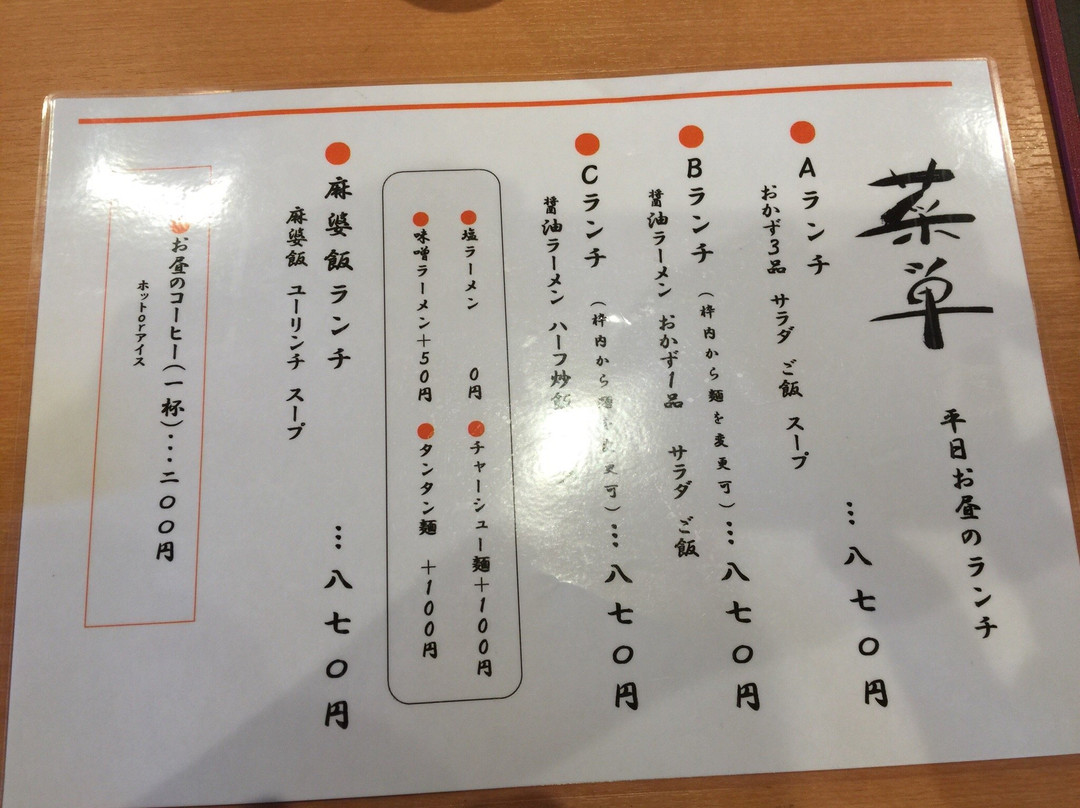 菜単
平日お昼のランチ
Aランチ …八七〇円
おかず3品 サラダ ご飯 スープ
Bランチ（枠内から麺を変更可）…八七〇円
醤油ラーメン おかず1品 サラダ ご飯
Cランチ（枠内から麺を変更可）…八七〇円
醤油ラーメン ハーフ炒飯
塩ラーメン 0円
チャーシュー麺+100円
味噌ラーメン+50円
タンタン麺 +100円
麻婆飯ランチ …八七〇円
麻婆飯 ユーリンチ スープ
お昼のコーヒー（一杯）…二〇〇円
ホットorアイス